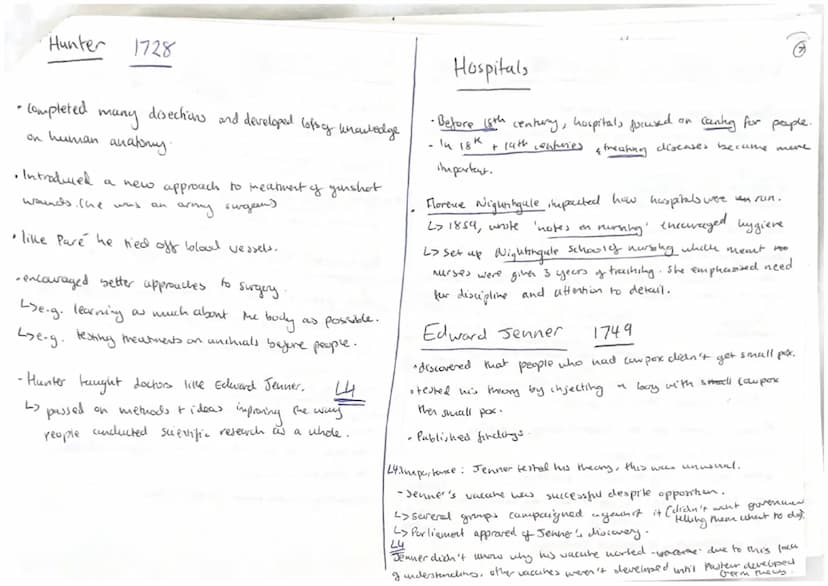 Hunter 1728
• Completed many disections and developed lots of knowledge
on human anatomy.
• Introduced a new approach to treatment of gunshot
wounds. (he was an army surgeon)
• like Paré he tied off blood vessels.
- encouraged better approaches to surgery.
↳ e.g. learning as much about the body as possible.
↳ e.g. testing treatments on animals before people.
- Hunter taught doctors like Edward Jenner. L4
↳ passed on methods + ideas improving the way
people conducted scientific research as a whole.
Hospitals
• Before 18th century, hospitals focused on caring for people.
- In 18th + 19th centuries treating diseases became more
important.
• Florence Nightingale impacted how hospitals were run.
↳ 1859, wrote 'notes on nursing' encouraged hygiene
↳ set up Nightingale School of nursing which meant
nurses were given 3 years of training. She emphasised need
for discipline and attention to detail.
Edward Jenner 1749
• discovered that people who had cowpox didn't get small pox.
• tested his theory by injecting a boy with cowpox
then small pox.
• Published findings.
L4 Importance: Jenner tested his theory, this was unusual.
- Jenner's vaccine was successful despite opposition.
↳ several groups campaigned against it (didn't want government
telling them what to do).
↳ Parliament approved of Jenner's discovery.
L4
Jenner didn't know why his vaccine worked due to this lack
of understanding, other vaccines weren't developed until Pasteur developed
Germ theory.